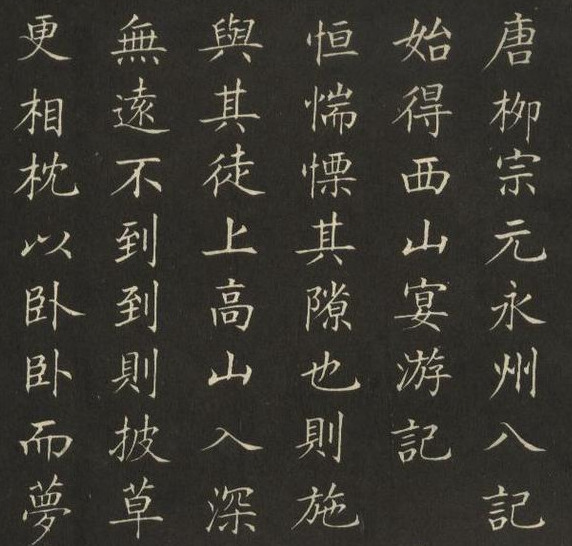 唐柳宗元永州八記
始得西山宴游記
恒惴慄其隙也則施
與其徒上高山入深
無遠不到到則披草
更相枕以卧卧而夢